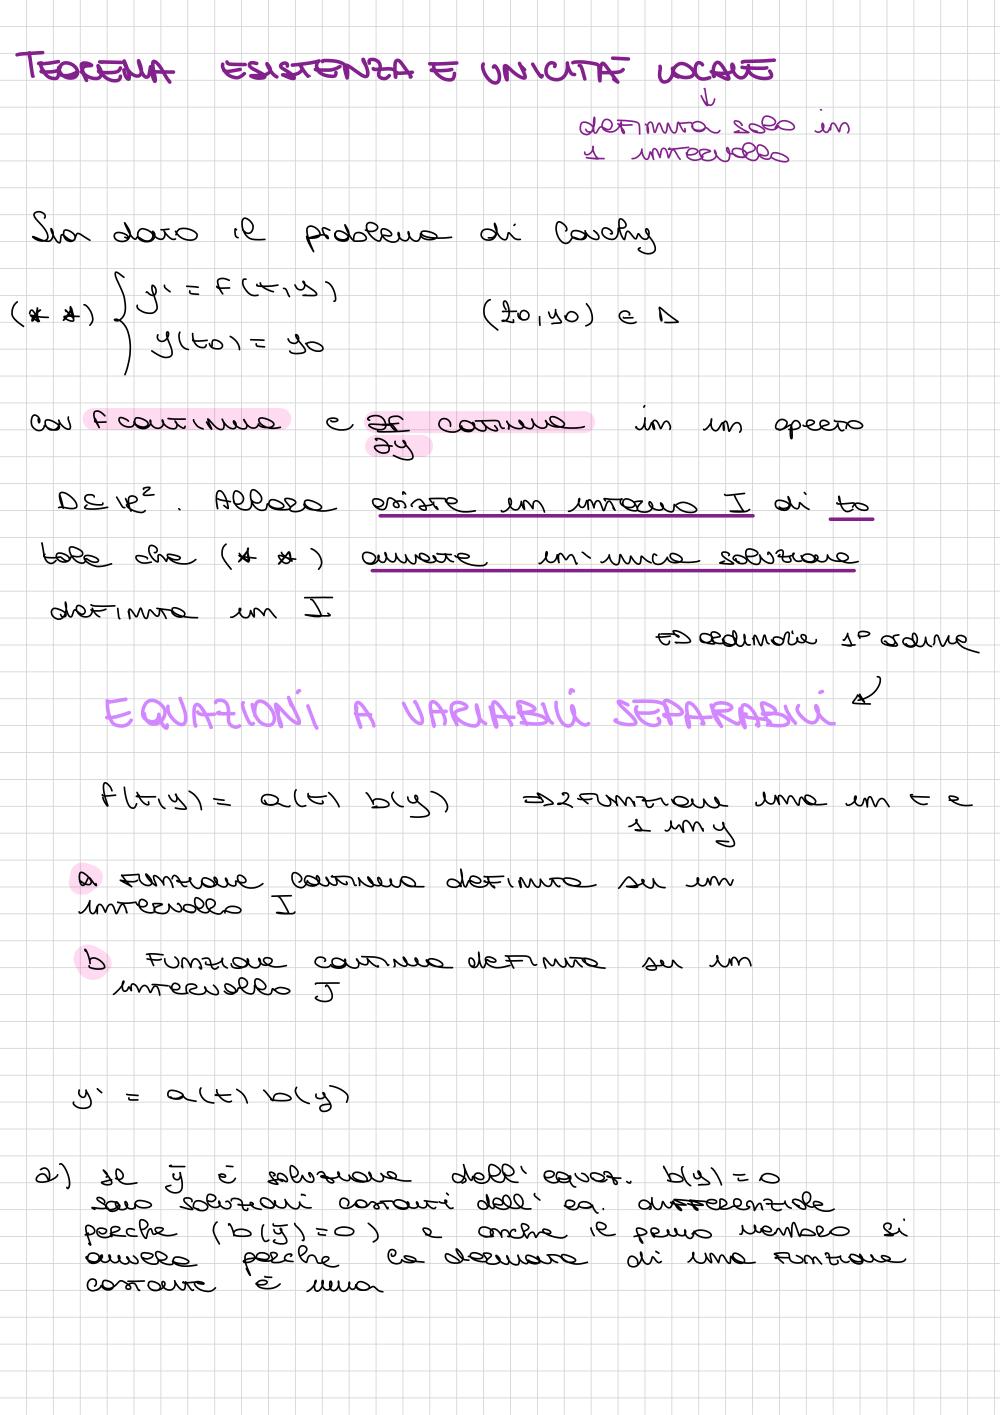 TEOREMA ESISTENZA E UNICITÀ LOCALE
↓
definita solo in
1 intervallo
Sia dato il problema di Cauchy
(* *) { y' = f(t,y)
y(to) = yo
(to, yo) ∈ D
con f continua e ∂f/∂y continua in un aperto
D ⊆ ℝ². Allora esiste un intorno I di to
tale che (* *) ammette un'unica soluzione
definita in I
ED ordinarie 1° ordine
EQUAZIONI A VARIABILI SEPARABILI
f(t,y) = a(t) b(y) ⇒ 2 funzioni una in t e
1 in y
a funzione continua definita su un
intervallo I
b funzione continua definita su un
intervallo J
y' = a(t) b(y)
a) se ȳ è soluzione dell' equaz. b(y) = 0
sono soluzioni costanti dell' eq. differenziale
perche (b(ȳ) = 0) e anche il primo membro si
annulla perche la derivata di una funzione
costante è nulla